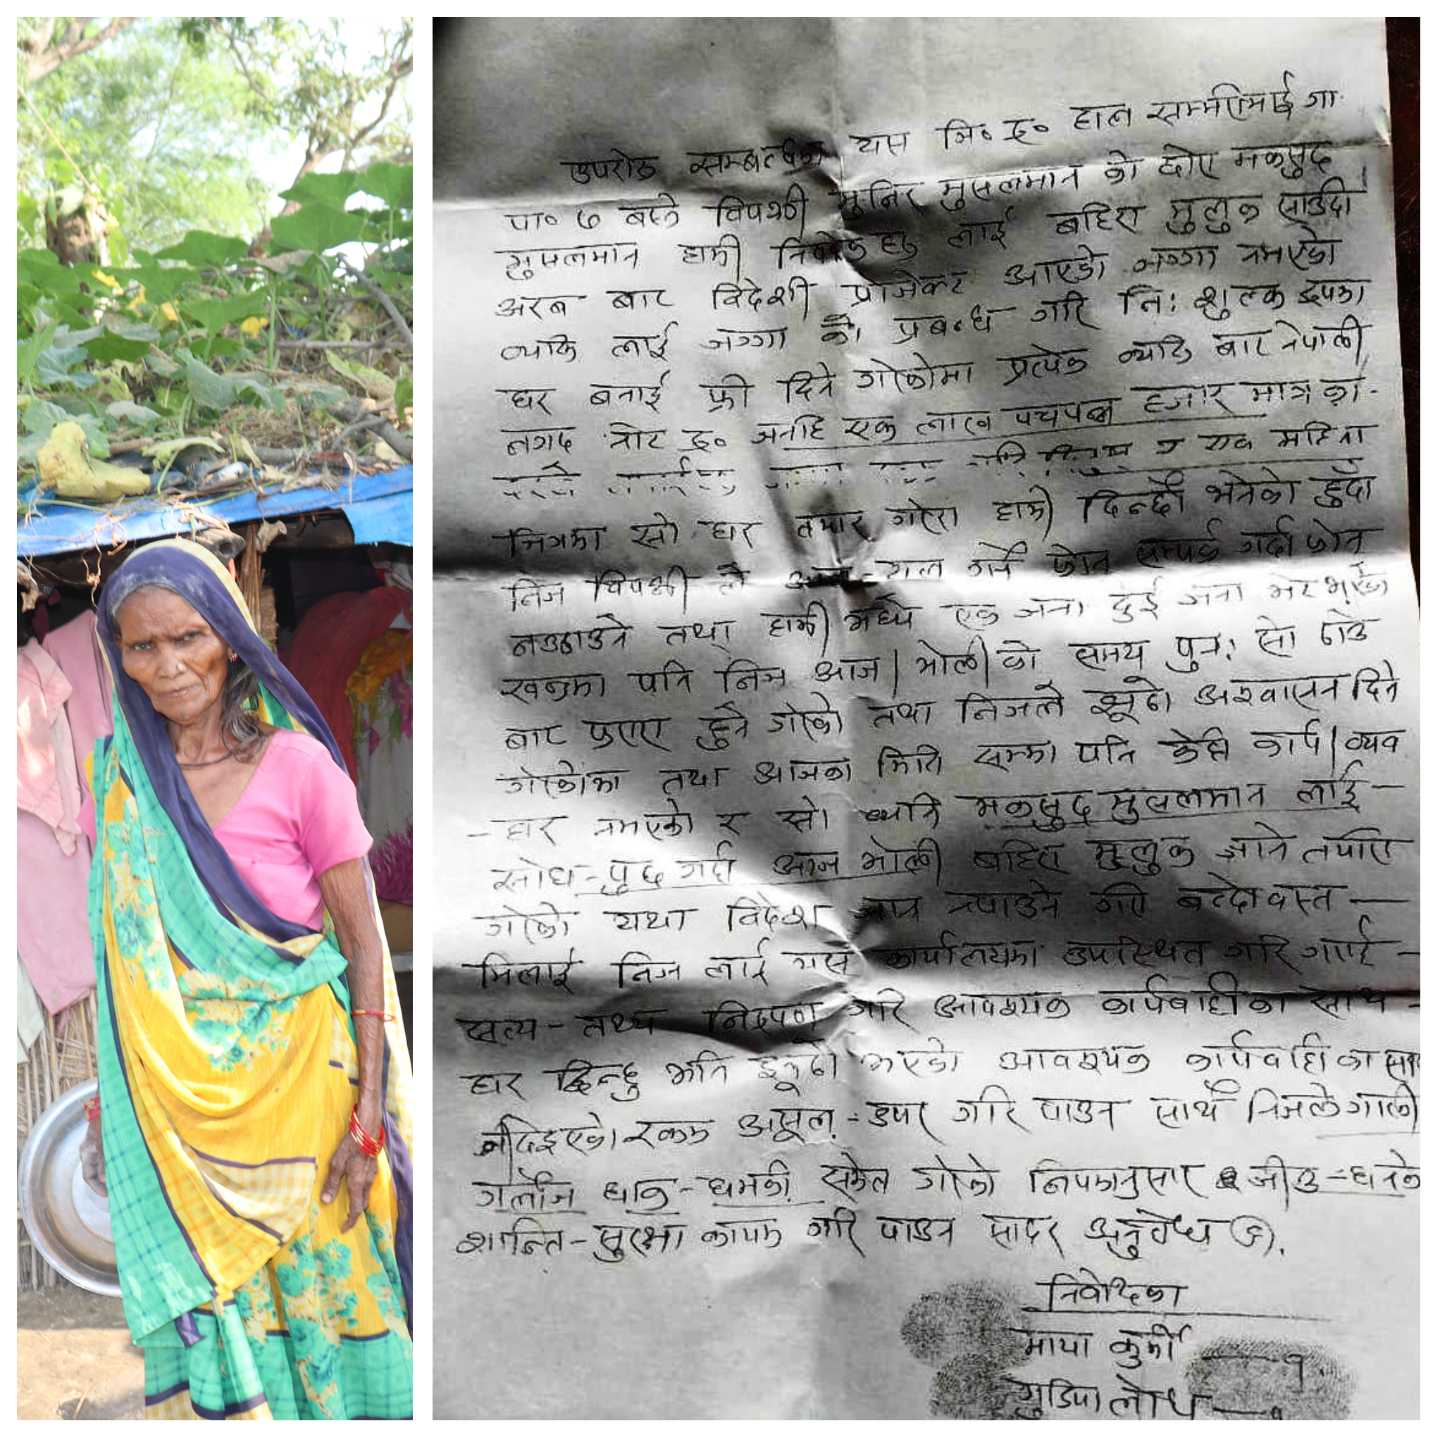 उपरोक्त सम्बन्धमा यस जि० रु० हाल सम्मरीमाई गा.
पा० ७ बस्ने विपक्षी मुनिर मुसलमान को छोरा मकसुद
मुसलमान हामी लाई बाहिरा मुलुक साउदी
अरब बाट विदेशी प्रोजेक्ट आएको जग्गा नभएको
व्यक्ति लाई जग्गा को प्रबन्ध गरि नि: शुल्क रुपमा
घर बनाई फ्री दिने गरेकोमा प्रत्येक व्यक्ति बाट नेपाली
नगद नोट रु० जनहि एक लाख पचपन्न हजार मात्र का.
र एक महिना
भित्रमा सो घर तयार गरेरा हामी दिन्छौं भनेको हुँदा
निज विपक्षी ले गर्ने फोन सम्पर्क गर्दा फोन
नउठाउने तथा हामी मध्ये एक जना दुई जना भेट भएको
खण्डमा पनि निज आज/भोली को समय पुन: सो ठाउ
बाट फरार हुने गरेको तथा निजले झूठो अश्वासन दिने
गरेकोमा तथा आजका मिति सम्म पनि केही कार्य/व्यव
-हार नभएको र सो व्यक्ति मकसुद मुसलमान लाई-
सोध-पुछ गर्दा आज भोली बाहिरा मुलुक जाने तयारि
गरेको यथा विदेश जान नपाउने गरि बन्दोवस्त-
मिलाई निज लाई यस कार्यालयमा उपस्थित गरि गराई-
सत्य-तथ्य निरुपण गरि आवश्यक कार्यवाहीका साथ-
घर दिन्छु भनि झूठो भएको आवश्यक कार्यवाही का साथ
नदिइएको रकम असूल-उपर गरि पाउन साथै निजले गाली
गलौज धाक-धमकी समेत गरेको नियमानुसार जीउ-धनको
शान्ति-सुरक्षा कायम गरि पाउन सादर अनुरोध छ।
निवेदिका
माया कुर्मी - १.
गुडिया लोध - १